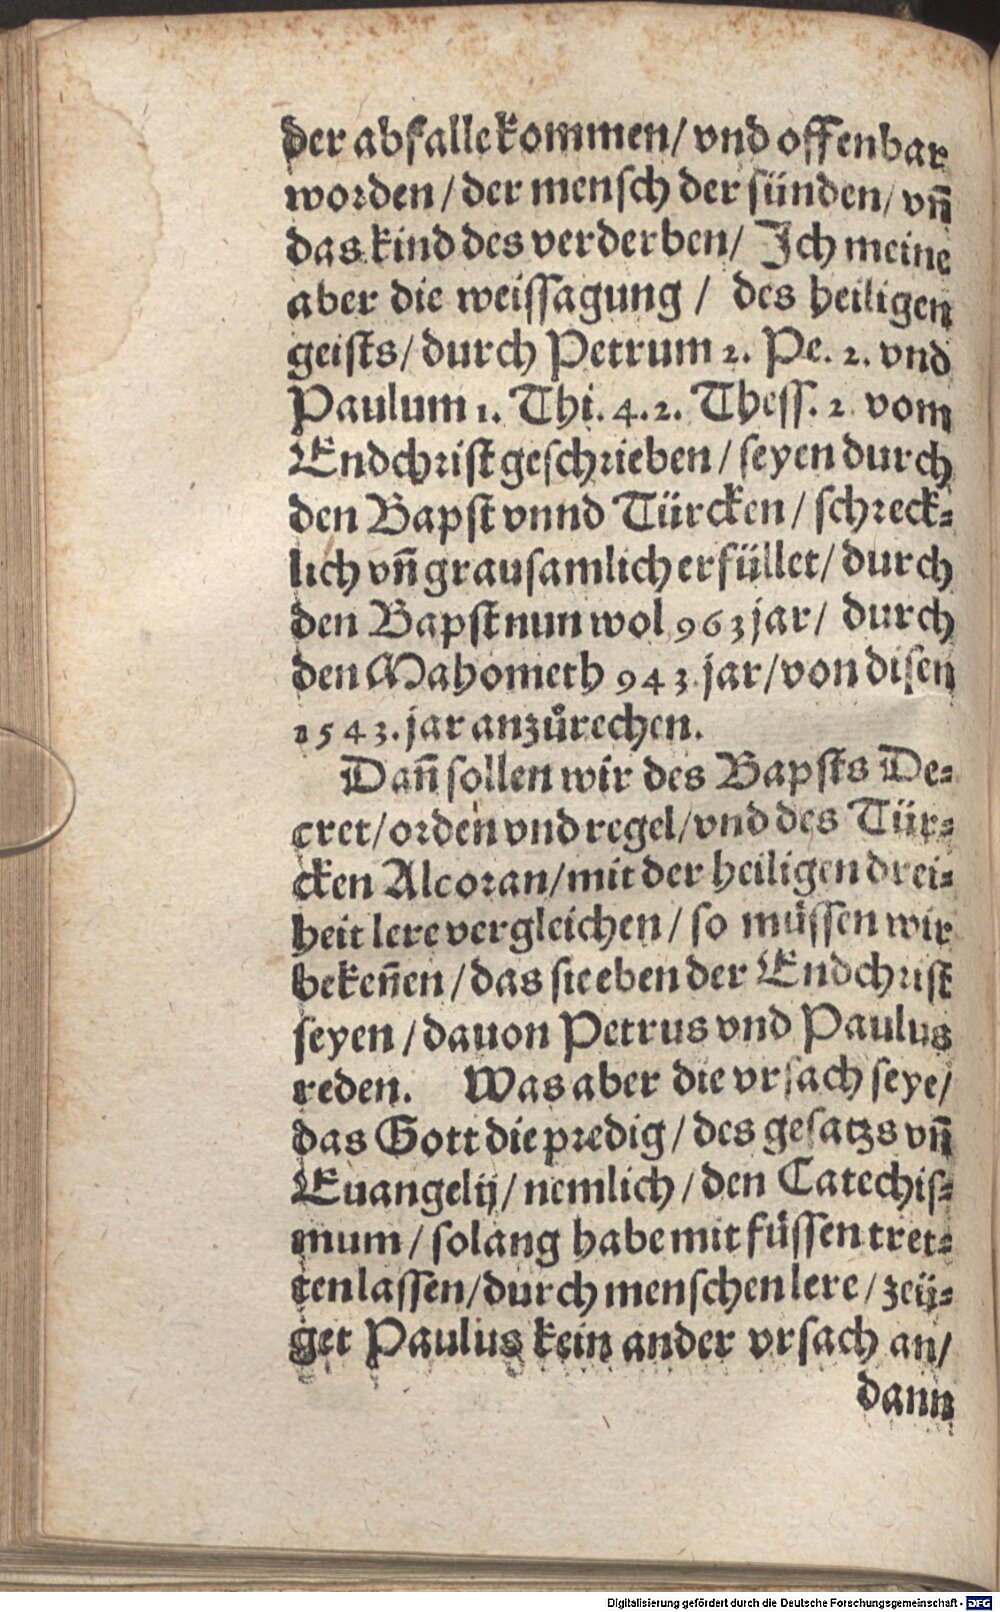 der abfalle kommen/ vnd offenbar
worden/ der mensch der sünden/ vñ
das kind des verderben/ Ich meine
aber die weissagung/ des heiligen
geists/ durch Petrum 2. Pe. 2. vnd
Paulum 1. Thi. 4. 2. Thess. 2 vom
Endchrist geschrieben/ seyen durch
den Bapst vnnd Türcken/ schreck⸗
lich vñ grausamlich erfüllet/ durch
den Bapst nun wol 963 jar/ durch
den Mahometh 943. jar/ von disen
1543. jar anzůrechen.
Dañ sollen wir des Bapsts De⸗
cret/ orden vnd regel/ vnd des Tür⸗
cken Alcoran/ mit der heiligen drei⸗
heit lere vergleichen/ so müssen wir
bekeñen/ das sie eben der Endchrist
seyen/ dauon Petrus vnd Paulus
reden. Was aber die vrsach seye/
das Gott die predig/ des gesatzs vñ
Euangelij/ nemlich/ den Catechis⸗
mum/ solang habe mit füssen tret⸗
ten lassen/ durch menschen lere/ zeü⸗
get Paulus kein ander vrsach an/
dann
Digitalisierung gefördert durch die Deutsche Forschungsgemeinschaft - DFG